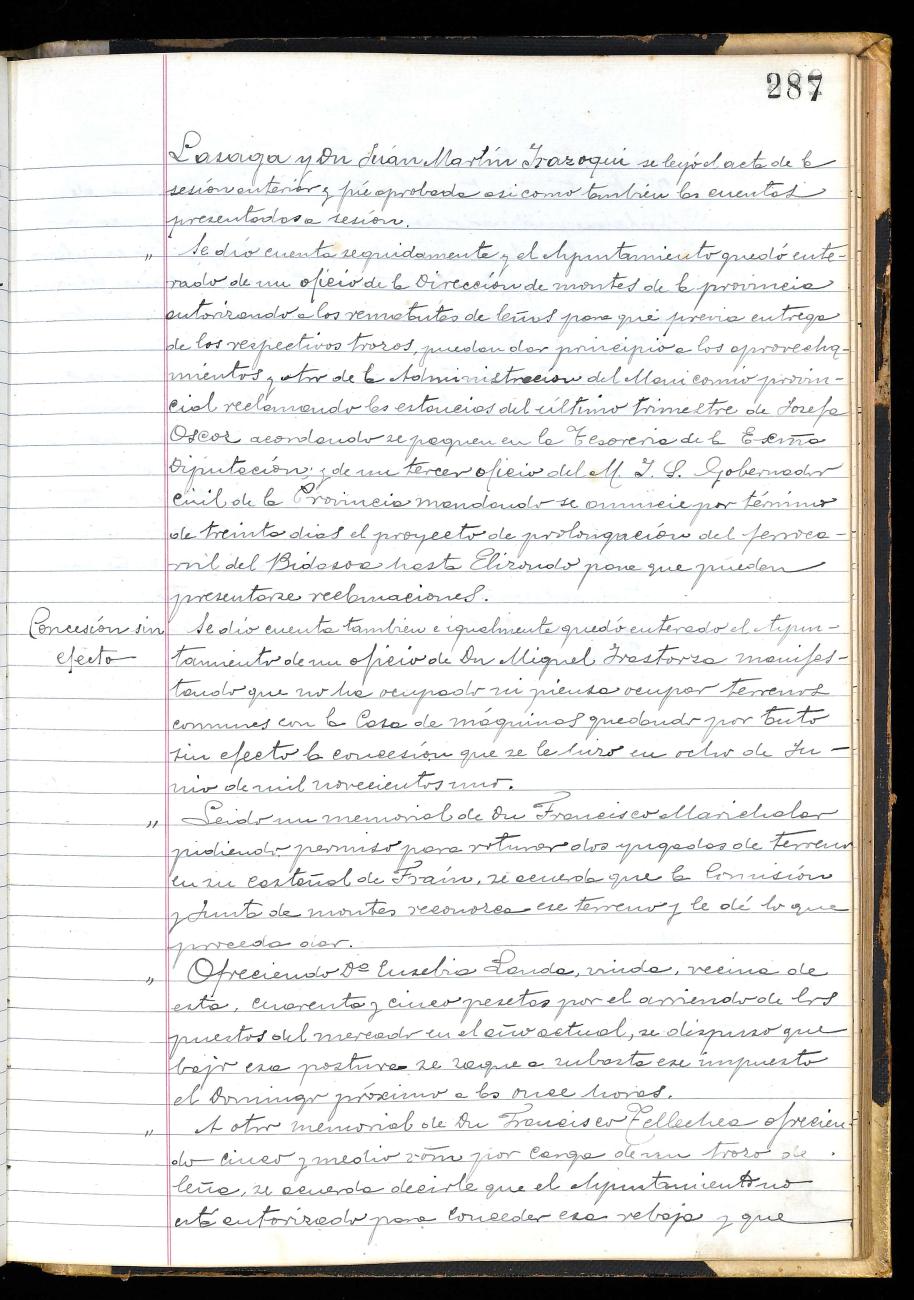 287
Lasaga y Dn Juán Martín Irazoqui se leyó el acta de la
sesión anterior y fué aprobada asi como también las cuentas
presentadas a sesión.
„ Se dió cuenta seguidamente y el Ayuntamiento quedó ente-
rado de un oficio de la Dirección de montes de la provincia
autorizando a los rematantes de leñas para que previa entrega
de los respectivos trozos, puedan dar principio a los aprovecha-
mientos y otro de la Administracion del Manicomio provin-
cial reclamando las estancias del último trimestre de Josefa
Oscoz acordando se paguen en la Tesoreria de la Excma
Diputación; y de un tercer oficio del M. I. S. Gobernador
civil de la Provincia mandando se anuncie por término
de treinta dias el proyecto de prolongación del ferroca-
rril del Bidasoa hasta Elizondo para que puedan
presentarse reclamaciones.
Concesión sin
efecto
Se dió cuenta también e igualmente quedó enterado el Ayun-
tamiento de un oficio de Dn Miguel Irastorza manifes-
tando que no ha ocupado ni piensa ocupar terrenos
comunes con la Casa de máquinas quedando por tanto
sin efecto la concesión que se le hizo en ocho de Ju-
nio de mil novecientos uno.
„ Leido un memorial de Dn Francisco Marichalar
pidiendo permiso para roturar dos yugadas de terreno
en su castañal de Fraín, se acuerda que la Comisión
y Junta de montes reconozca ese terreno y le dé lo que
proceda dar.
„ Ofreciendo Dª Eusebia Landa, viuda, vecina de
esta, cuarenta y cinco pesetas por el arriendo de los
puestos del mercado en el año actual, se dispuso que
bajo esa postura se saque a subasta ese impuesto
el Domingo próximo a las once horas.
„ A otro memorial de Dn Francisco Tellechea ofrecien-
do cinco y medio rs̃ vn̄ por carga de un trozo de
leña, se acuerda decirle que el Ayuntamiento no
está autorizado para conceder esa rebaja y que